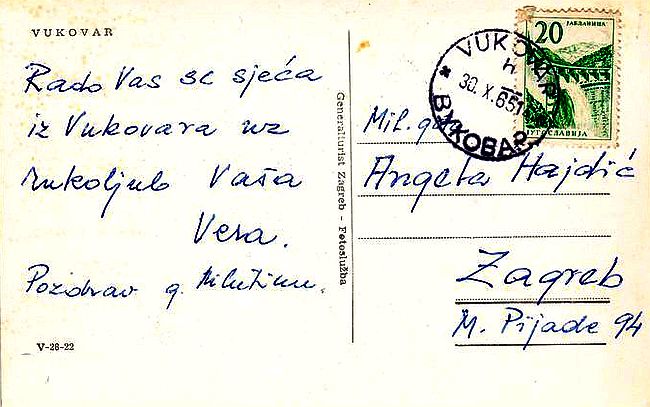 VUKOVAR
Rado Vas se sjeća
iz Vukovara uz
rukoljub Vaša
Vera.
Pozdrav g. Milutinu.
V-26-22
Generalturist Zagreb - Fotoslužba
20
ЈАБЛАНИЦА
ЈУГОСЛАВИЈА
VUKOVAR
30.X.65
ВУКОВАР
Mil. gđa
Angela Hajdić
Zagreb
M. Pijade 94